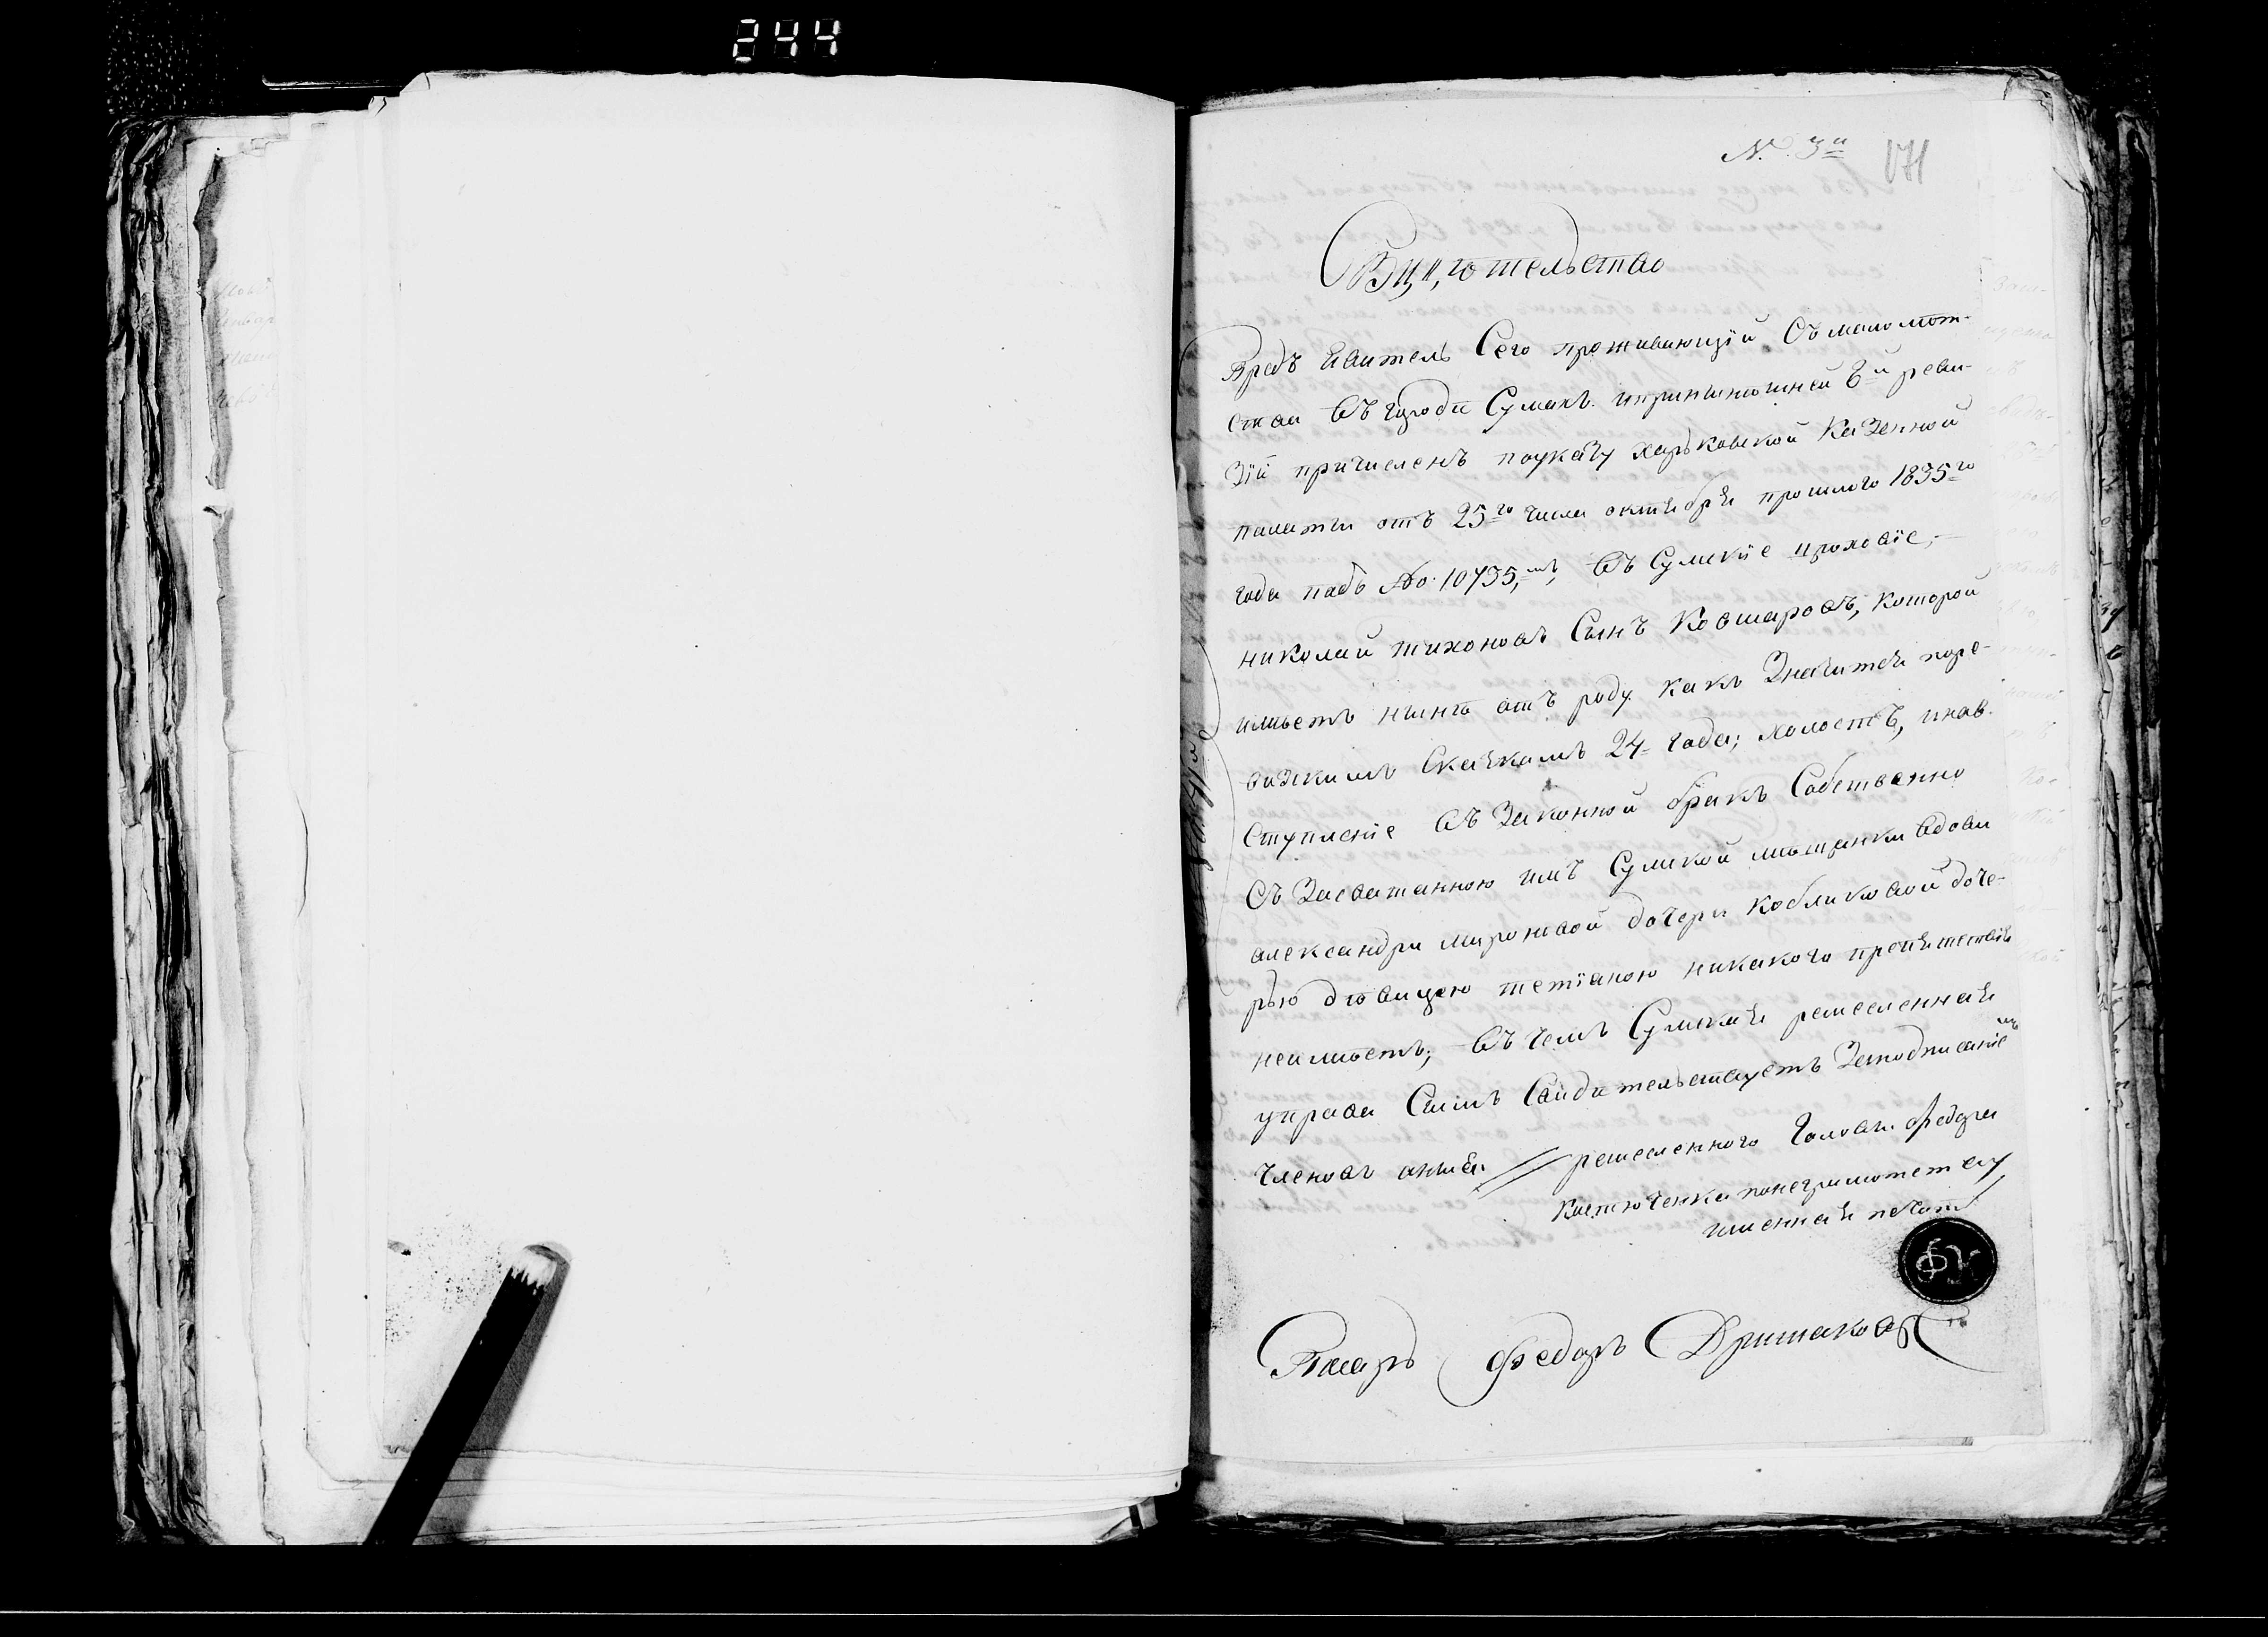 244
№ 3й 171
Свидѣтельство
Предъявитель сего проживающій съ мало лѣт-
ства въ городѣ Сумахъ, и при нынѣшней 8й реви-
зіи причисленъ по указу харьковской Казенной
палаты отъ 25го числа октября прошлаго 1835го
года подъ № 10795,мъ, въ Сумскіе цѣховіе,-
николай тихоновъ Сынъ Ковшаровъ, которой
имѣетъ нынѣ отъ роду какъ Значится по ре-
визкимъ Сказкамъ 24 года; холостъ, и на в-
ступленіе въ Законной бракъ Собственно
съ Засватанною имъ Сумской мѣщанки вдовы
александры мироновой дочери Кобликовой доче-
рью дѣвицею тетіаною никакого препятствія
неимѣетъ; въ чемъ Сумская ремесленная
управа Симъ Свидѣтельствуетъ За подписаніемъ
Членовъ // ремесленного Головы федора
Костюченка по неграмотству
именная печать
ФК
Писарь федоръ Дришаковъ